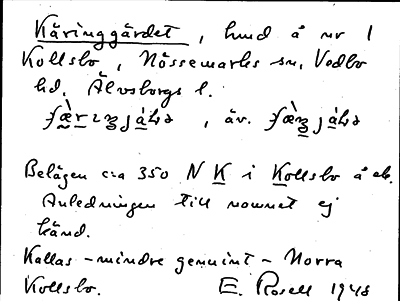 Käringgärdet, hmd å nr 1
Kollsbo, Nössemarks sn, Vedbo
hd, Älvsborgs l.
, äv.
Belägen cra 350 N K i Kollsbo å ek.
Anledningen till namnet ej
känd.
Kallas - mindre genuint - Norra
Kollsbo. E. Rosell 1948